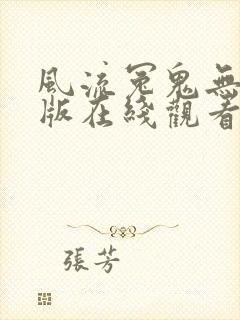 風流冤鬼無
版在綫觀看
張芳